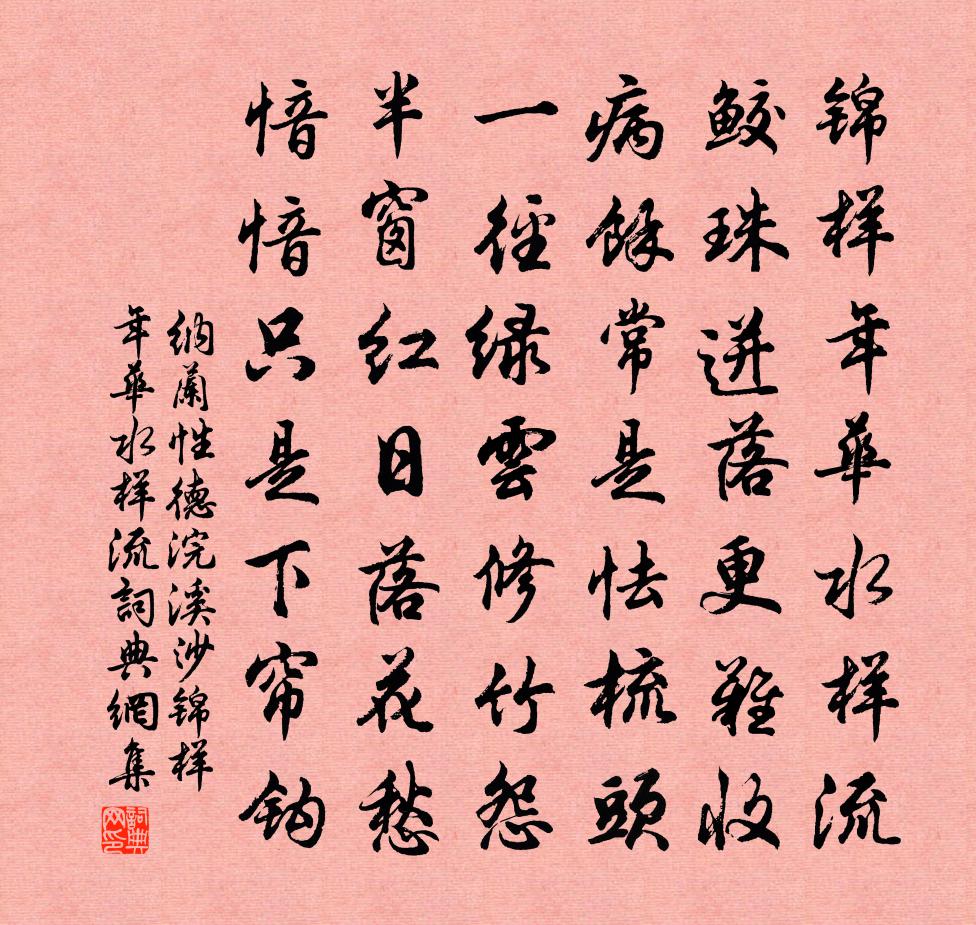 锦样年華水样流
鲛珠迸落更難收
病餘常是怯梳頭
一徑绿雲修竹怨
半窗红日落花愁
愔愔只是下帘钩
纳蘭性德浣溪沙锦样
年華水样流詞典網集
詞典网印